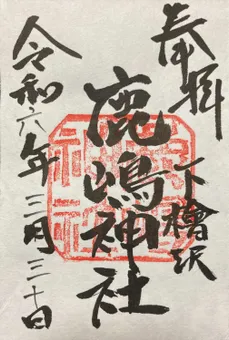 奉拝
下檜沢
鹿嶋神社
令和六年三月三十日